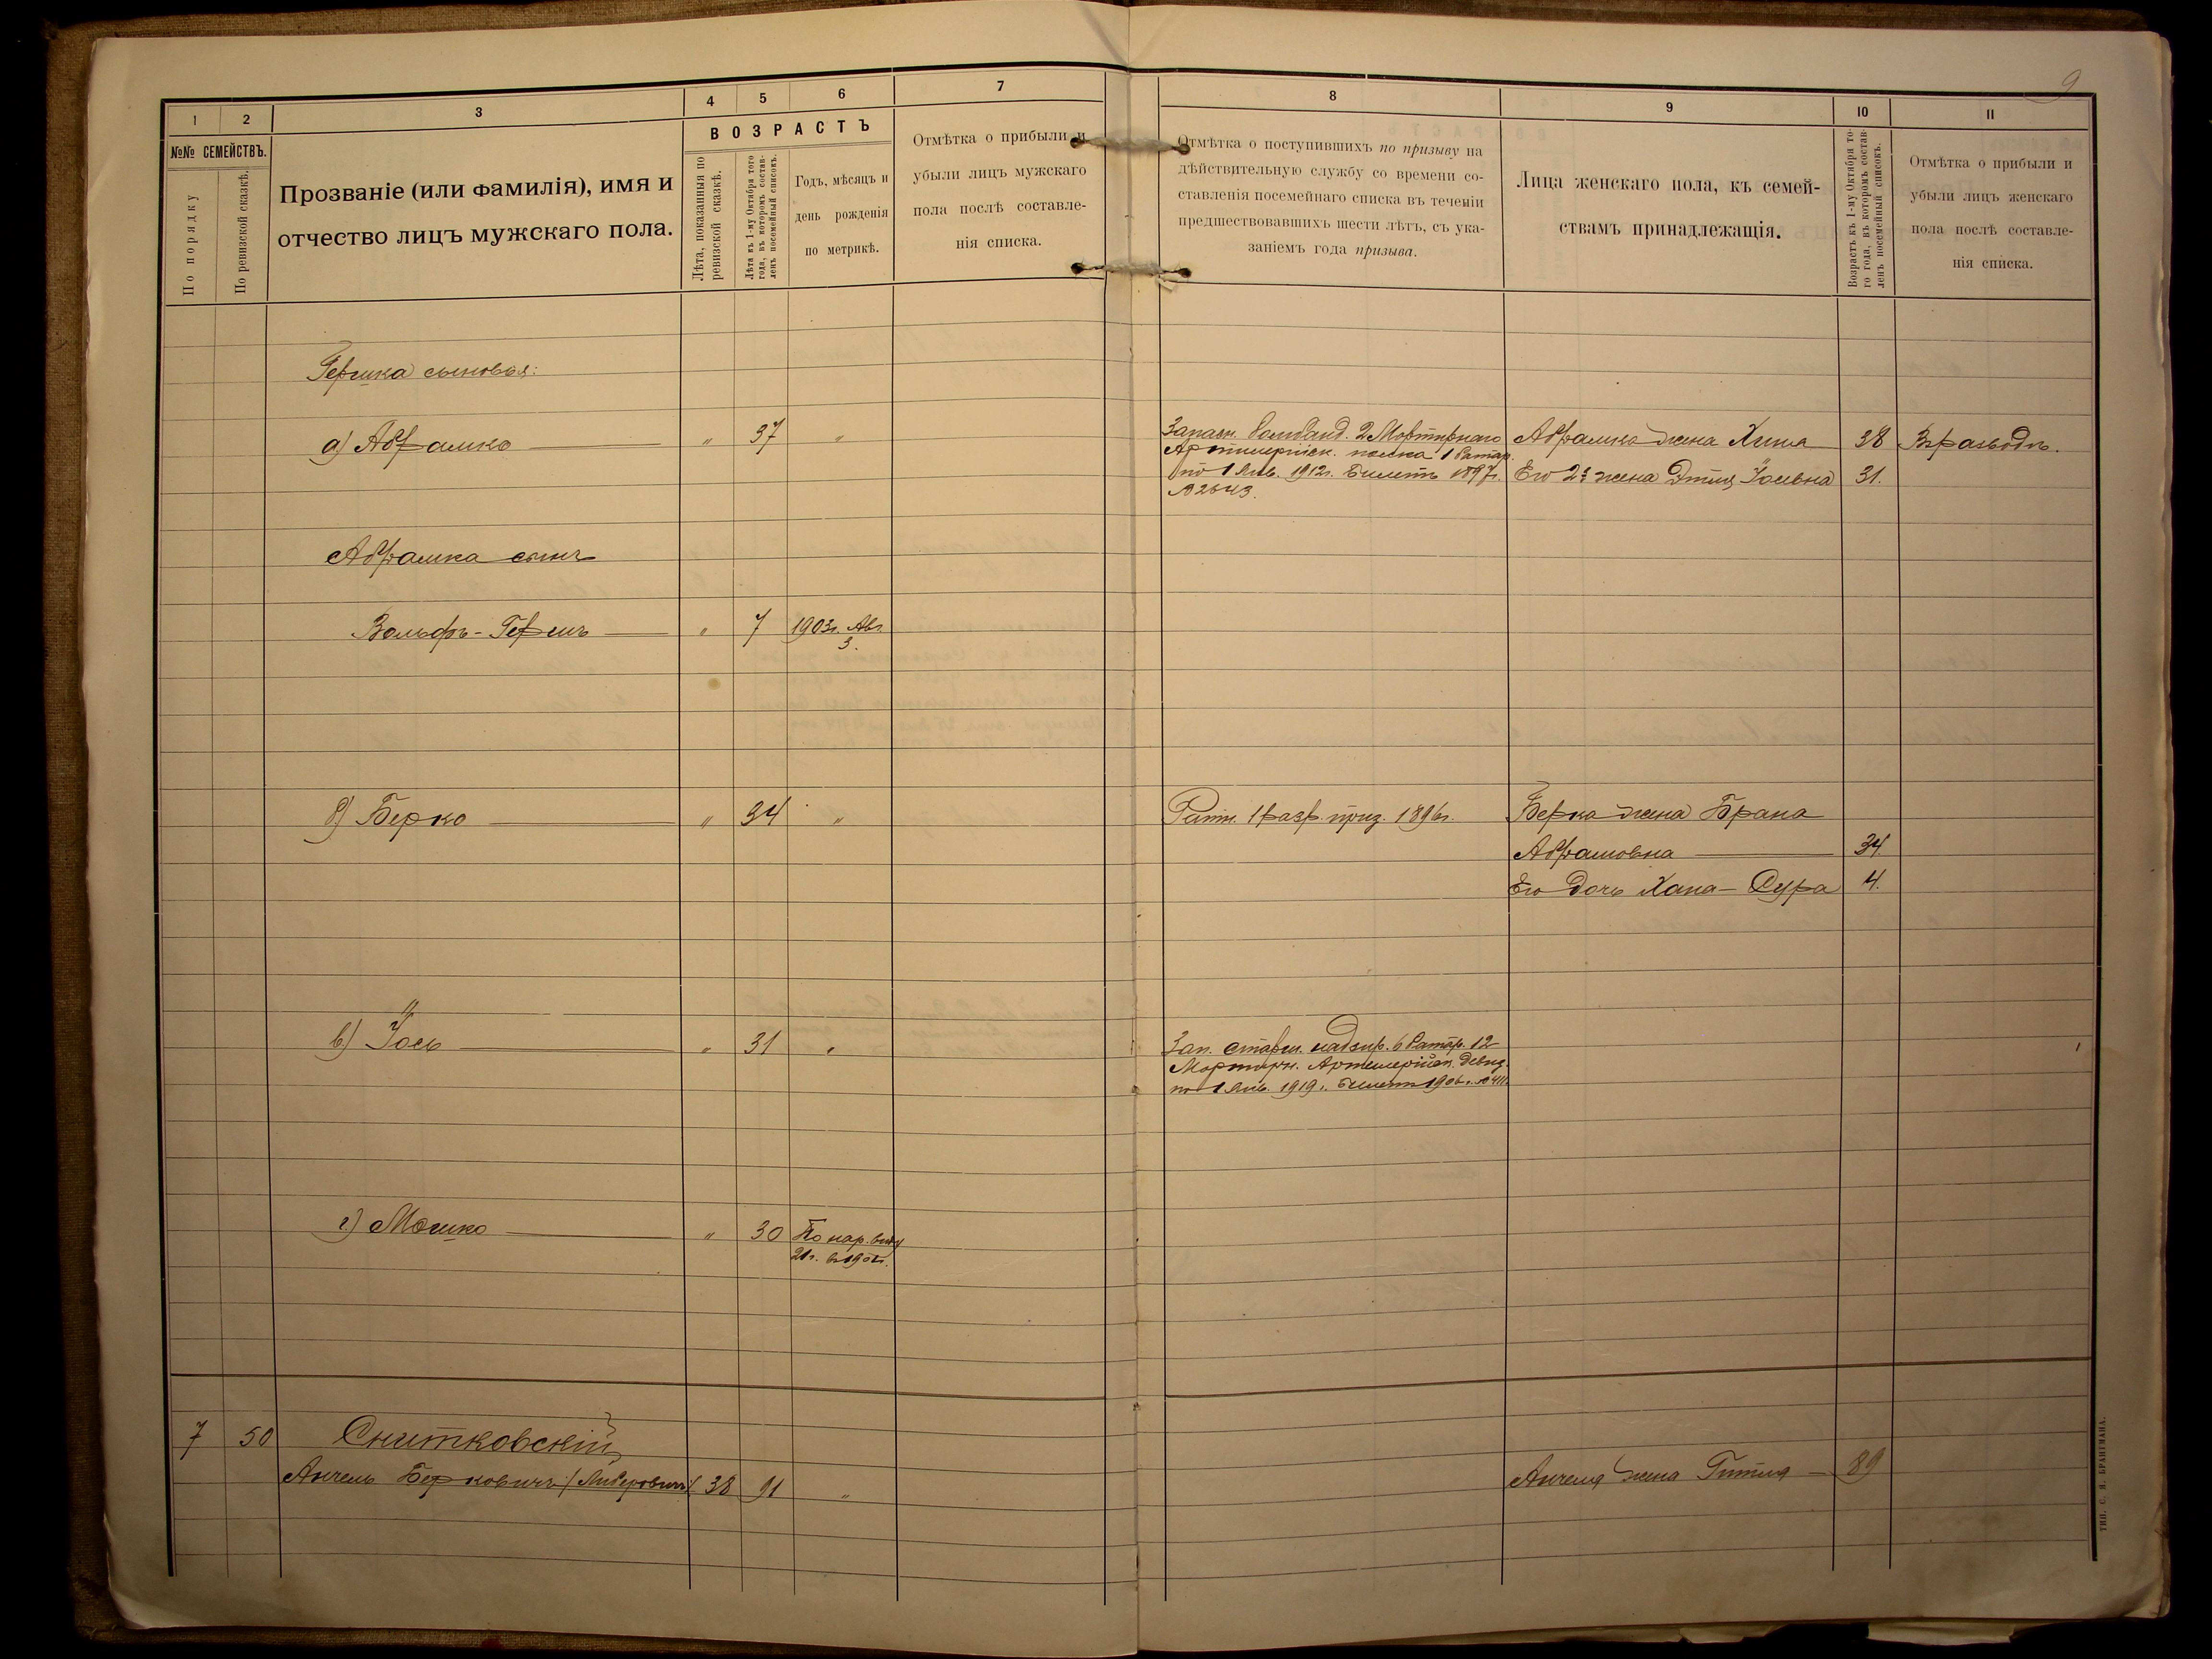 9
1 2 3 4 5 6 7
№№ СЕМЕЙСТВЪ.
По порядку
По ревизской сказкѣ.
Прозваніе (или фамилія), имя и
отчество лицъ мужскаго пола.
ВОЗРАСТЪ
Лѣта, показанныя по
ревизской сказкѣ.
Лѣта къ 1-му Октября того
года, въ которомъ состав-
ленъ посемейный списокъ.
Годъ, мѣсяцъ и
день рожденія
по метрикѣ.
Отмѣтка о прибыли и
убыли лицъ мужскаго
пола послѣ составле-
нія списка.
8 9 10 11
Отмѣтка о поступившихъ по призыву на
дѣйствительную службу со времени со-
ставленія посемейнаго списка въ теченіи
предшествовавшихъ шести лѣтъ, съ ука-
заніемъ года призыва.
Лица женскаго пола, къ семей-
ствамъ принадлежащія.
Возрастъ къ 1-му Октября то-
го года, въ которомъ состав-
ленъ посемейный списокъ.
Отмѣтка о прибыли и
убыли лицъ женскаго
пола послѣ составле-
нія списка.
Гершка сыновья:
а) Абрамко — " 37 "
Запасн. 2 Мортирнаго
Артилерійск. полка 1 Батар.
по 1 Янв. 1912г. Билетъ 1897г.
№ 2643.
Абрамка жена Хина 38 Въ разводѣ.
Его 2я жена Этля Іосевна 31.
Абрамка сынъ
Вольфъ-Гершъ — " 7 1903г. Авг.
3.
б) Берко — " 34 "
Ратн. 1 разр. приз. 1896г.
Берка жена Брана
Абрамовна — 34.
Его дочь Хана-Сура 4.
в) Іось — " 31 "
Зап. старш. надзир. 6 Батар. 12
Мортирн. Артилерійск. Дивиз.
по 1 Янв. 1919г. Билетъ 1906г. № 411.
г) Мошко — " 30 По нар. виду
21г. въ 1901г.
7 50 Снитковскій
Анчель Берковичъ / Лидеровичъ / 38 91 "
Анчеля жена Гитля — 89
ТИП. С. Я. БРАНГМАНА.